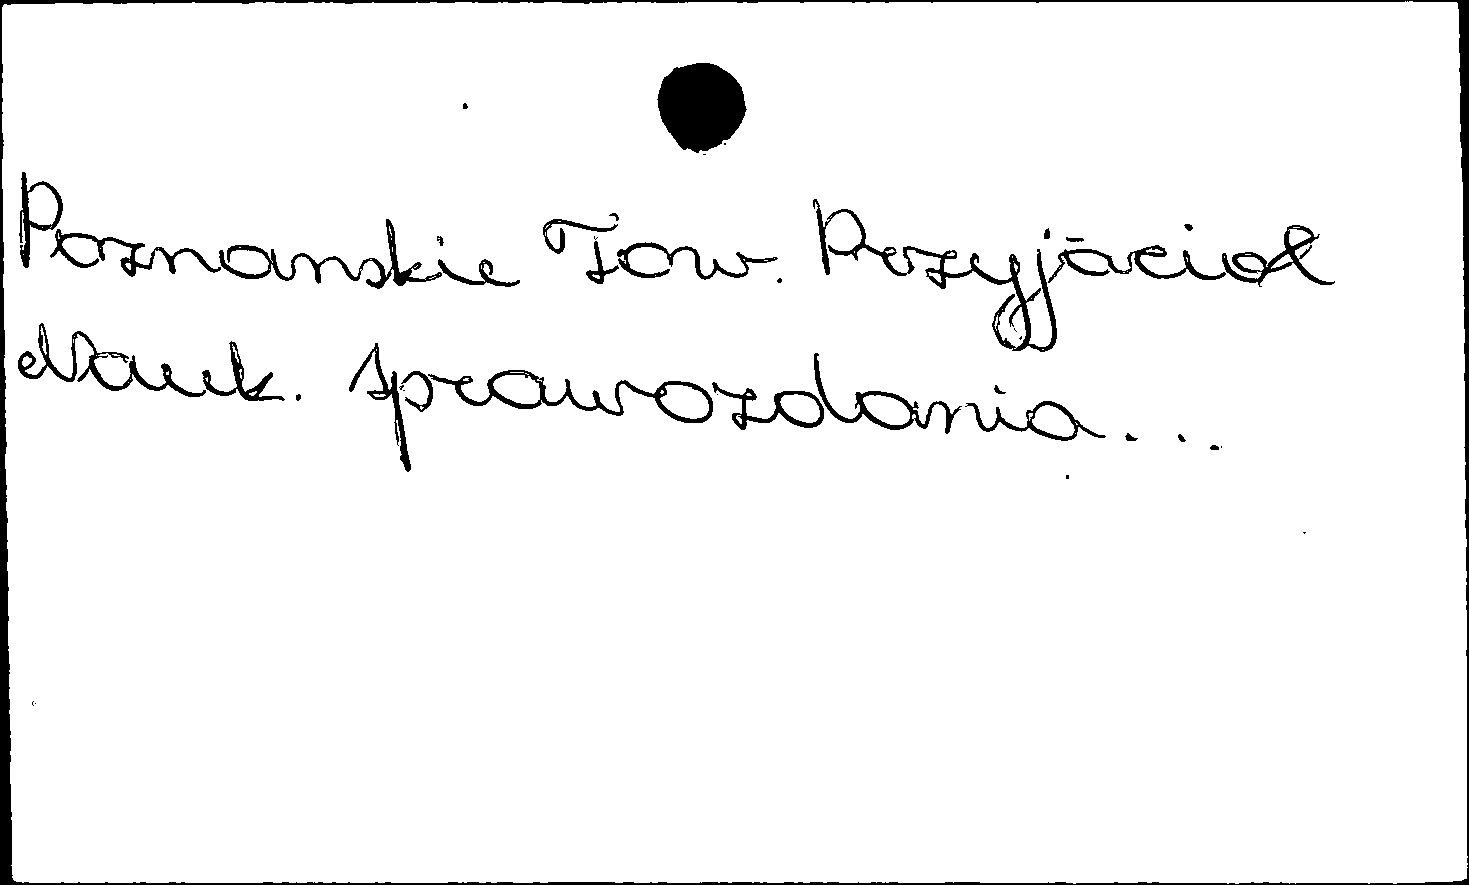 Poznanskie Tow. Przyjaciol
Nauk. Sprawozdania...